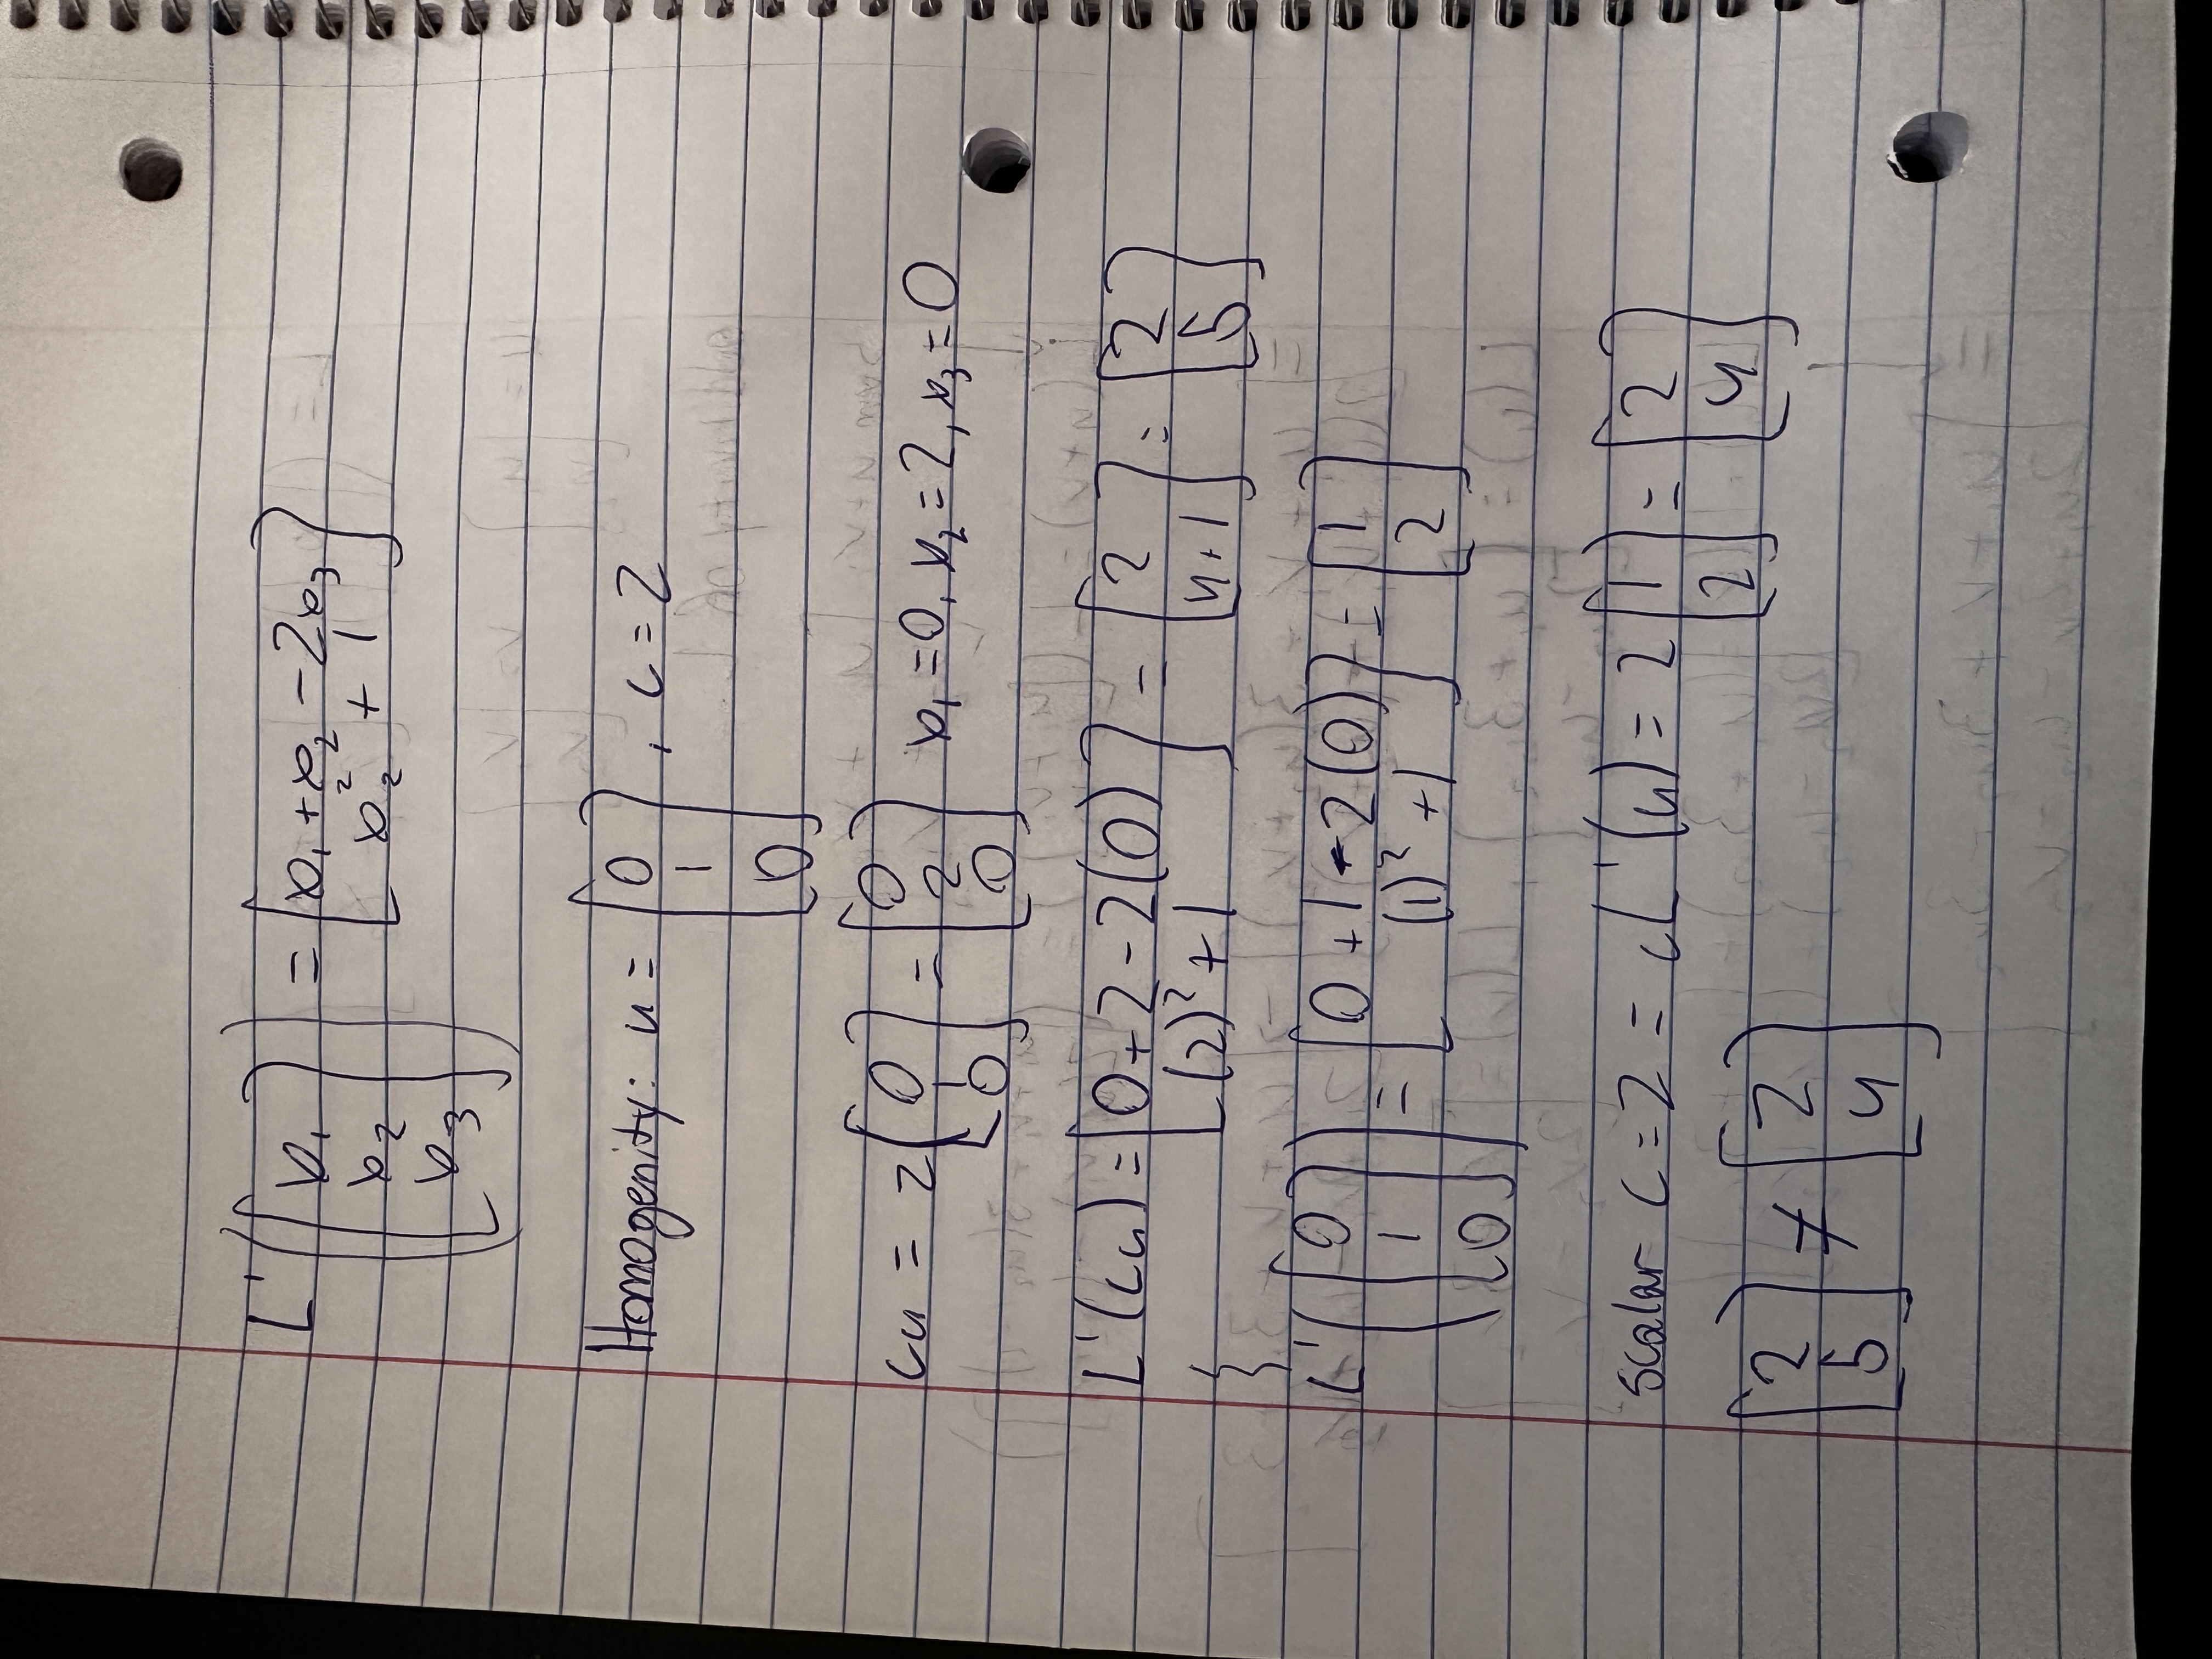 L'([x₁ x₂ x₃]) = [x₁ + x₂ - 2x₃
x₂² + 1]
Homogenity: u = [0 1 0], c = 2
cu = 2[0 1 0] = [0 2 0] x₁ = 0, x₂ = 2, x₃ = 0
L'(cu) = [0 + 2 - 2(0)
(2)² + 1] = [2
4+1] = [2
5]
L'([0 1 0]) = [0 + 1 - 2(0)
(1)² + 1] = [1
2]
scalar c = 2 = cL'(u) = 2[1
2] = [2
4]
[2
5] ≠ [2
4]